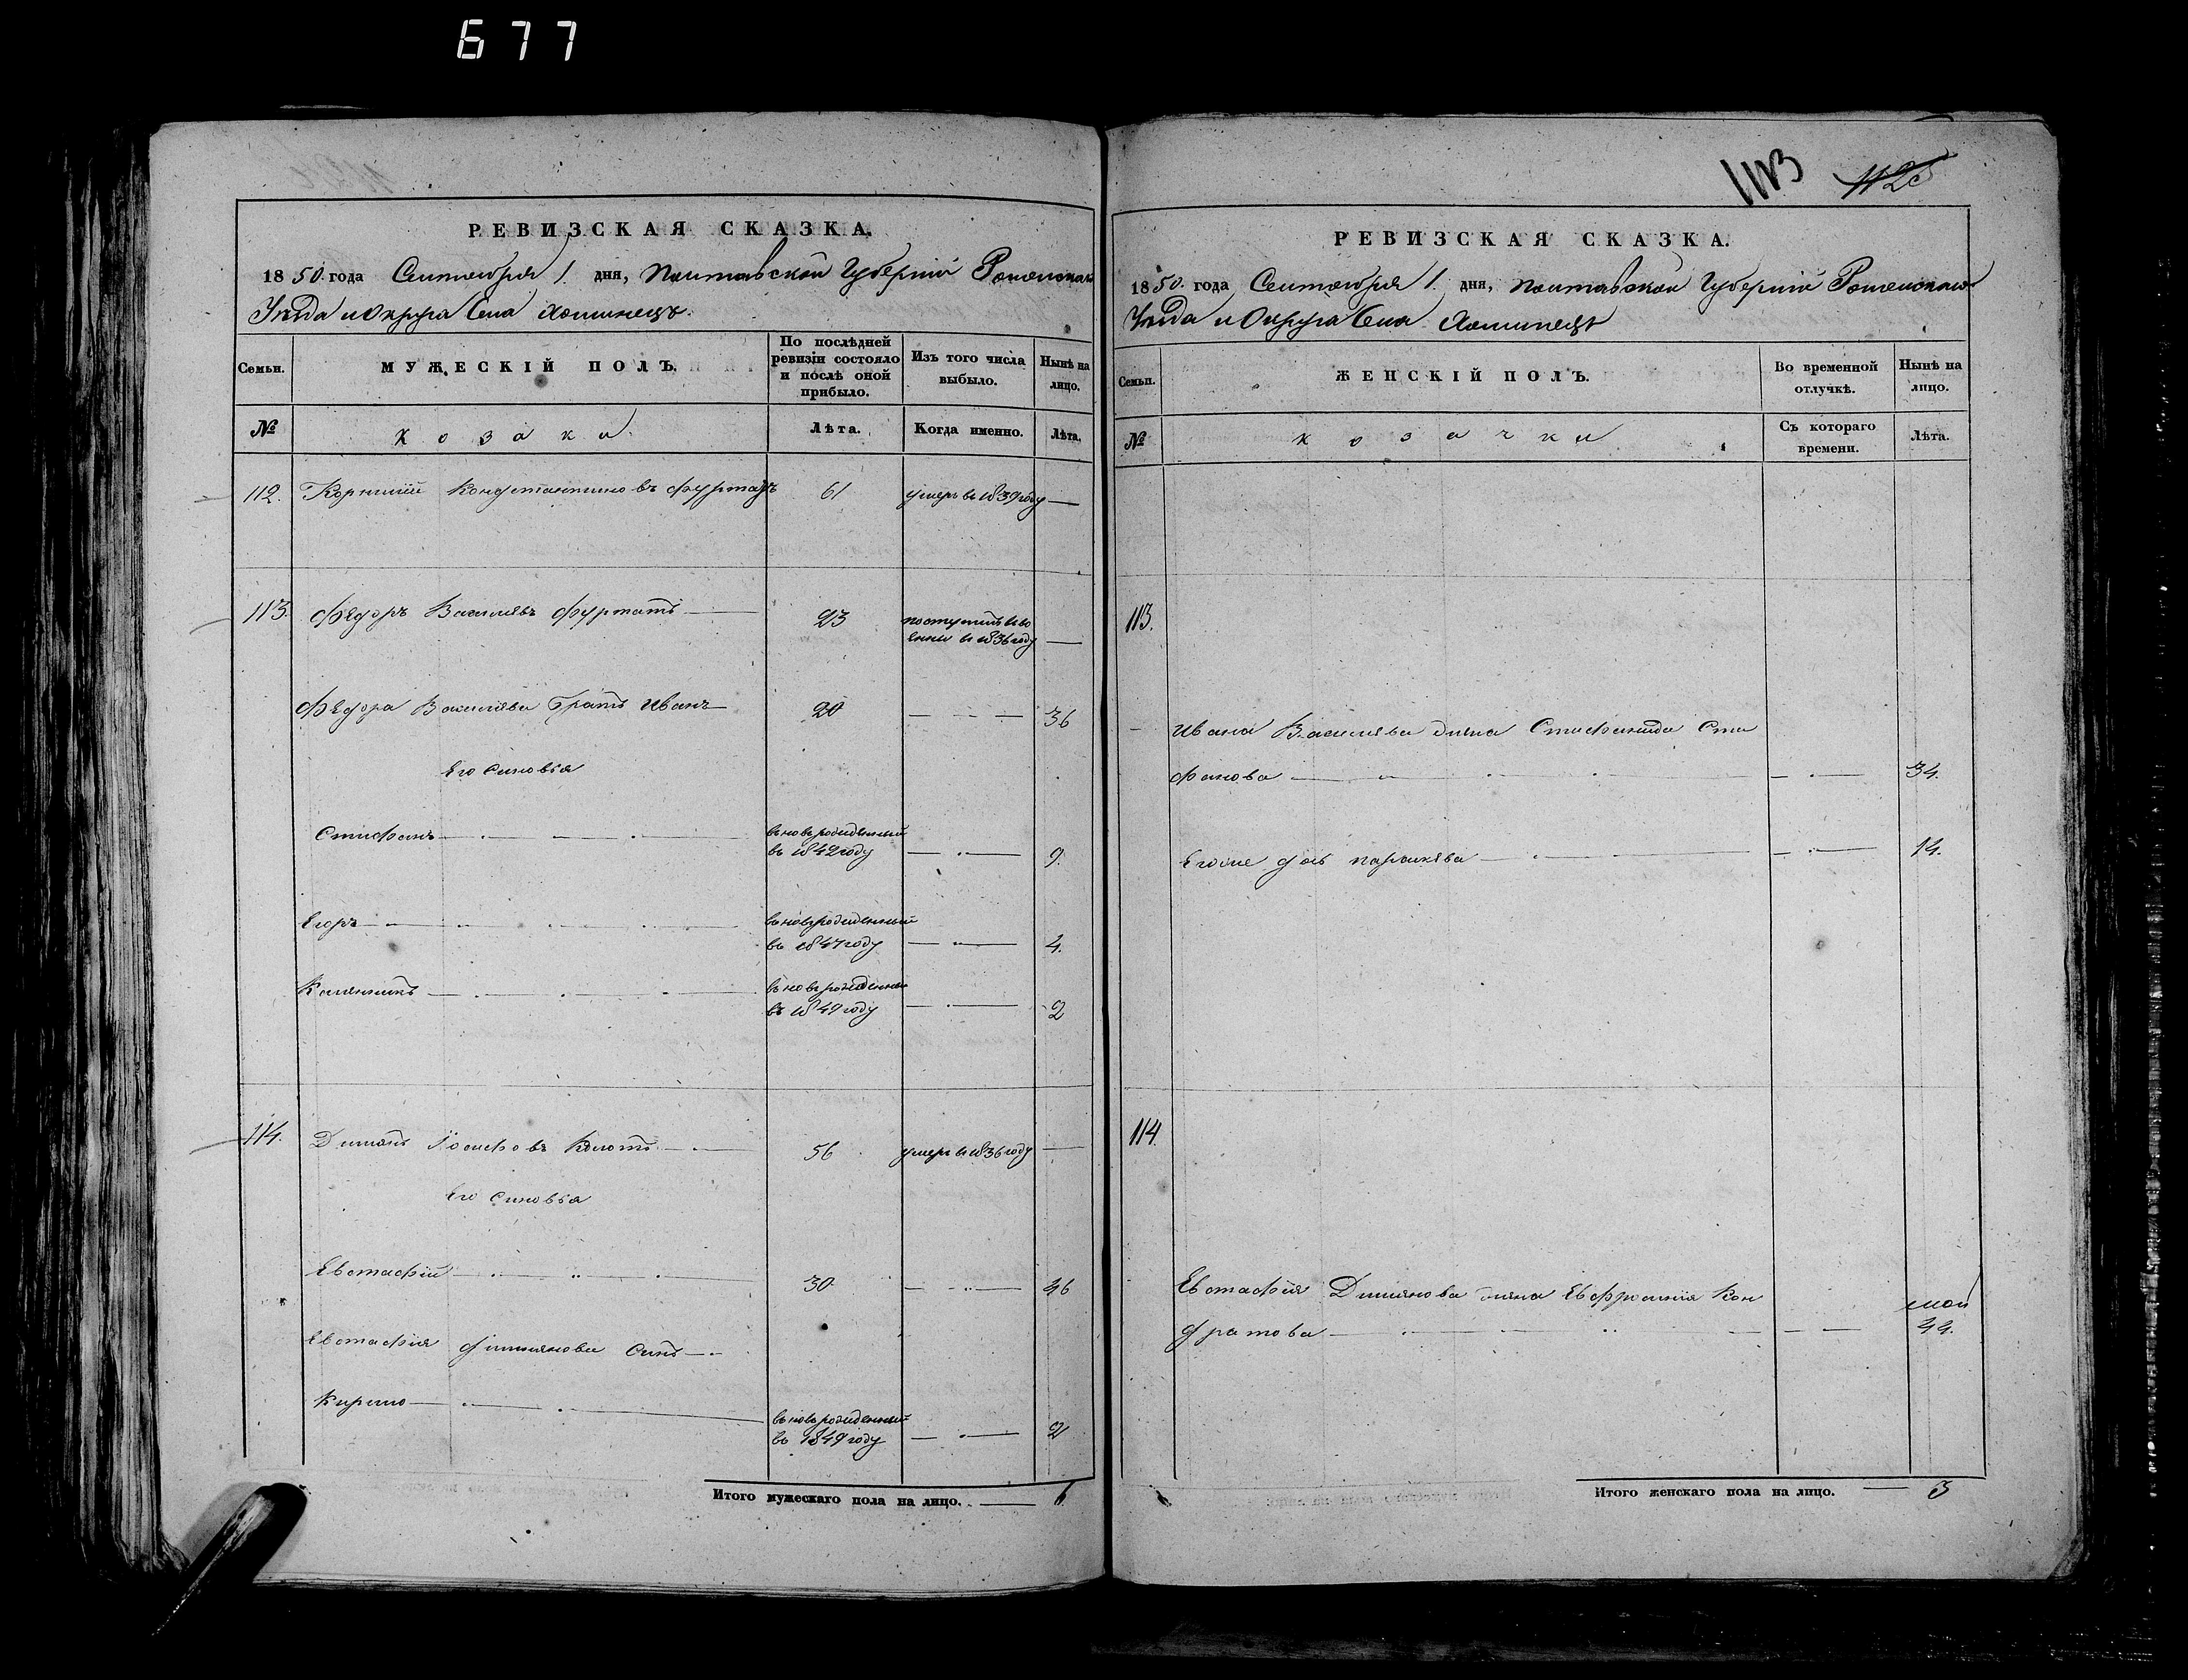 677
РЕВИЗСКАЯ СКАЗКА.
1850. года Сентября 1. дня, Полтавской Губерніи Роменскаго
Уѣзда и Округа Села Хоминецъ.
Семьи.
МУЖЕСКІЙ ПОЛЪ.
По послѣдней ревизіи состояло и послѣ оной прибыло.
Изъ того числа выбыло.
Нынѣ на лицо.
№
Козаки.
Лѣта.
Когда именно.
Лѣта.
112. Корнилій Константиновъ Фуртатъ 61 умеръ въ 1839 году —
113. Федоръ Васильевъ Фуртатъ — 23 поступилъ
въ 1836 году —
Федора Васильева братъ Иванъ — 20 — 36
Его синовья
Стефанъ — вновьрожденный
въ 1842 году — 9.
Егоръ — вновьрожденный
въ 1847 году — 4.
вновьрожденный
въ 1849 году — 2
114. Диміянъ Іосифовъ 56 умеръ въ 1836 году —
Его синовья
Евстафій — 30 — 46
Евстафія Диміянова синъ —
Кирило — вновьрожденный
въ 1849 году — 2
Итого мужескаго пола на лицо. — 6
1113 1126
РЕВИЗСКАЯ СКАЗКА.
1850. года Сентября 1. дня, Полтавской Губерніи Роменскаго
Уѣзда и Округа Села Хоминецъ
Семьи.
ЖЕНСКІЙ ПОЛЪ.
Во временной отлучкѣ.
Нынѣ на лицо.
№
Козачки
Съ котораго времени.
Лѣта.
113.
Ивана Васильева жена Стефанида Сте
фанова — 34.
Егоже дочь Параскева — 14.
114.
Евстафія Диміянова жена Евфросинія Кон
дратова — 44.
Итого женскаго пола на лицо. — 3